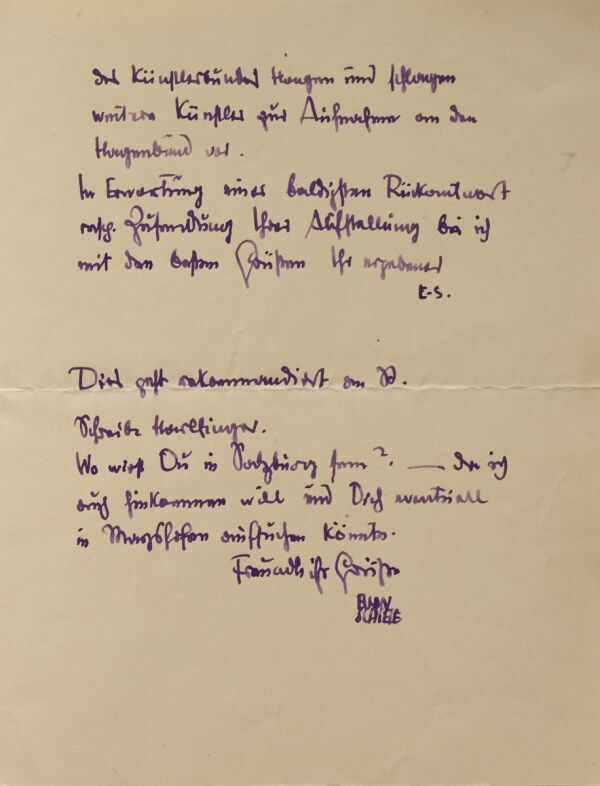 des Künstlerbundes Hagen und schlagen
weitere Künstler zur Aufnahme an den
Hagenbund vor.
In Erwartung einer baldigsten Rückantwort
resp. Zusendung Ihrer Aufstellung bin ich
mit den besten Grüßen Ihr ergebener
E-S.
Dies geht rekommandiert an S.
Schreibe Harlfinger.
Wo wirst Du in Salzburg sein? — da ich
auch hinkommen will und Dich eventuell
in aufsuchen könnte.
Freundliche Grüße
EGON
SCHIELE